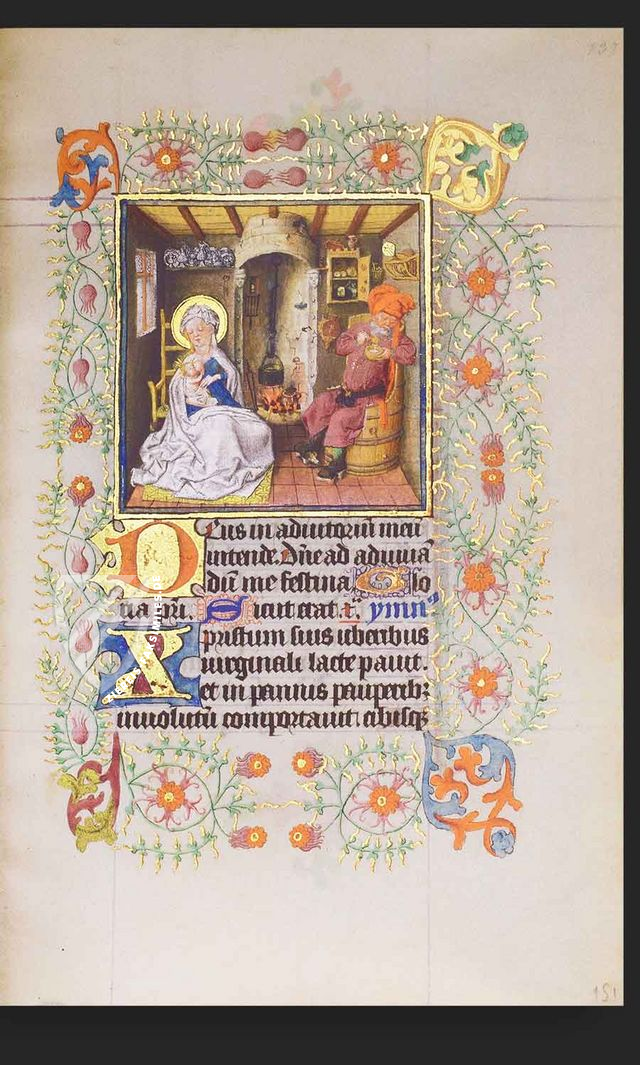 Deus in adiutoriū meū
intende. Dn̄e ad adiuuā
dū me festina Glo
ria p̄ri. Sicut erat. ymnꝰ
Xpristum suis uberibus
uirginali lacte pauit.
et in pannis pauperibꝫ
inuolutū comportauit cibisqꝫ
151